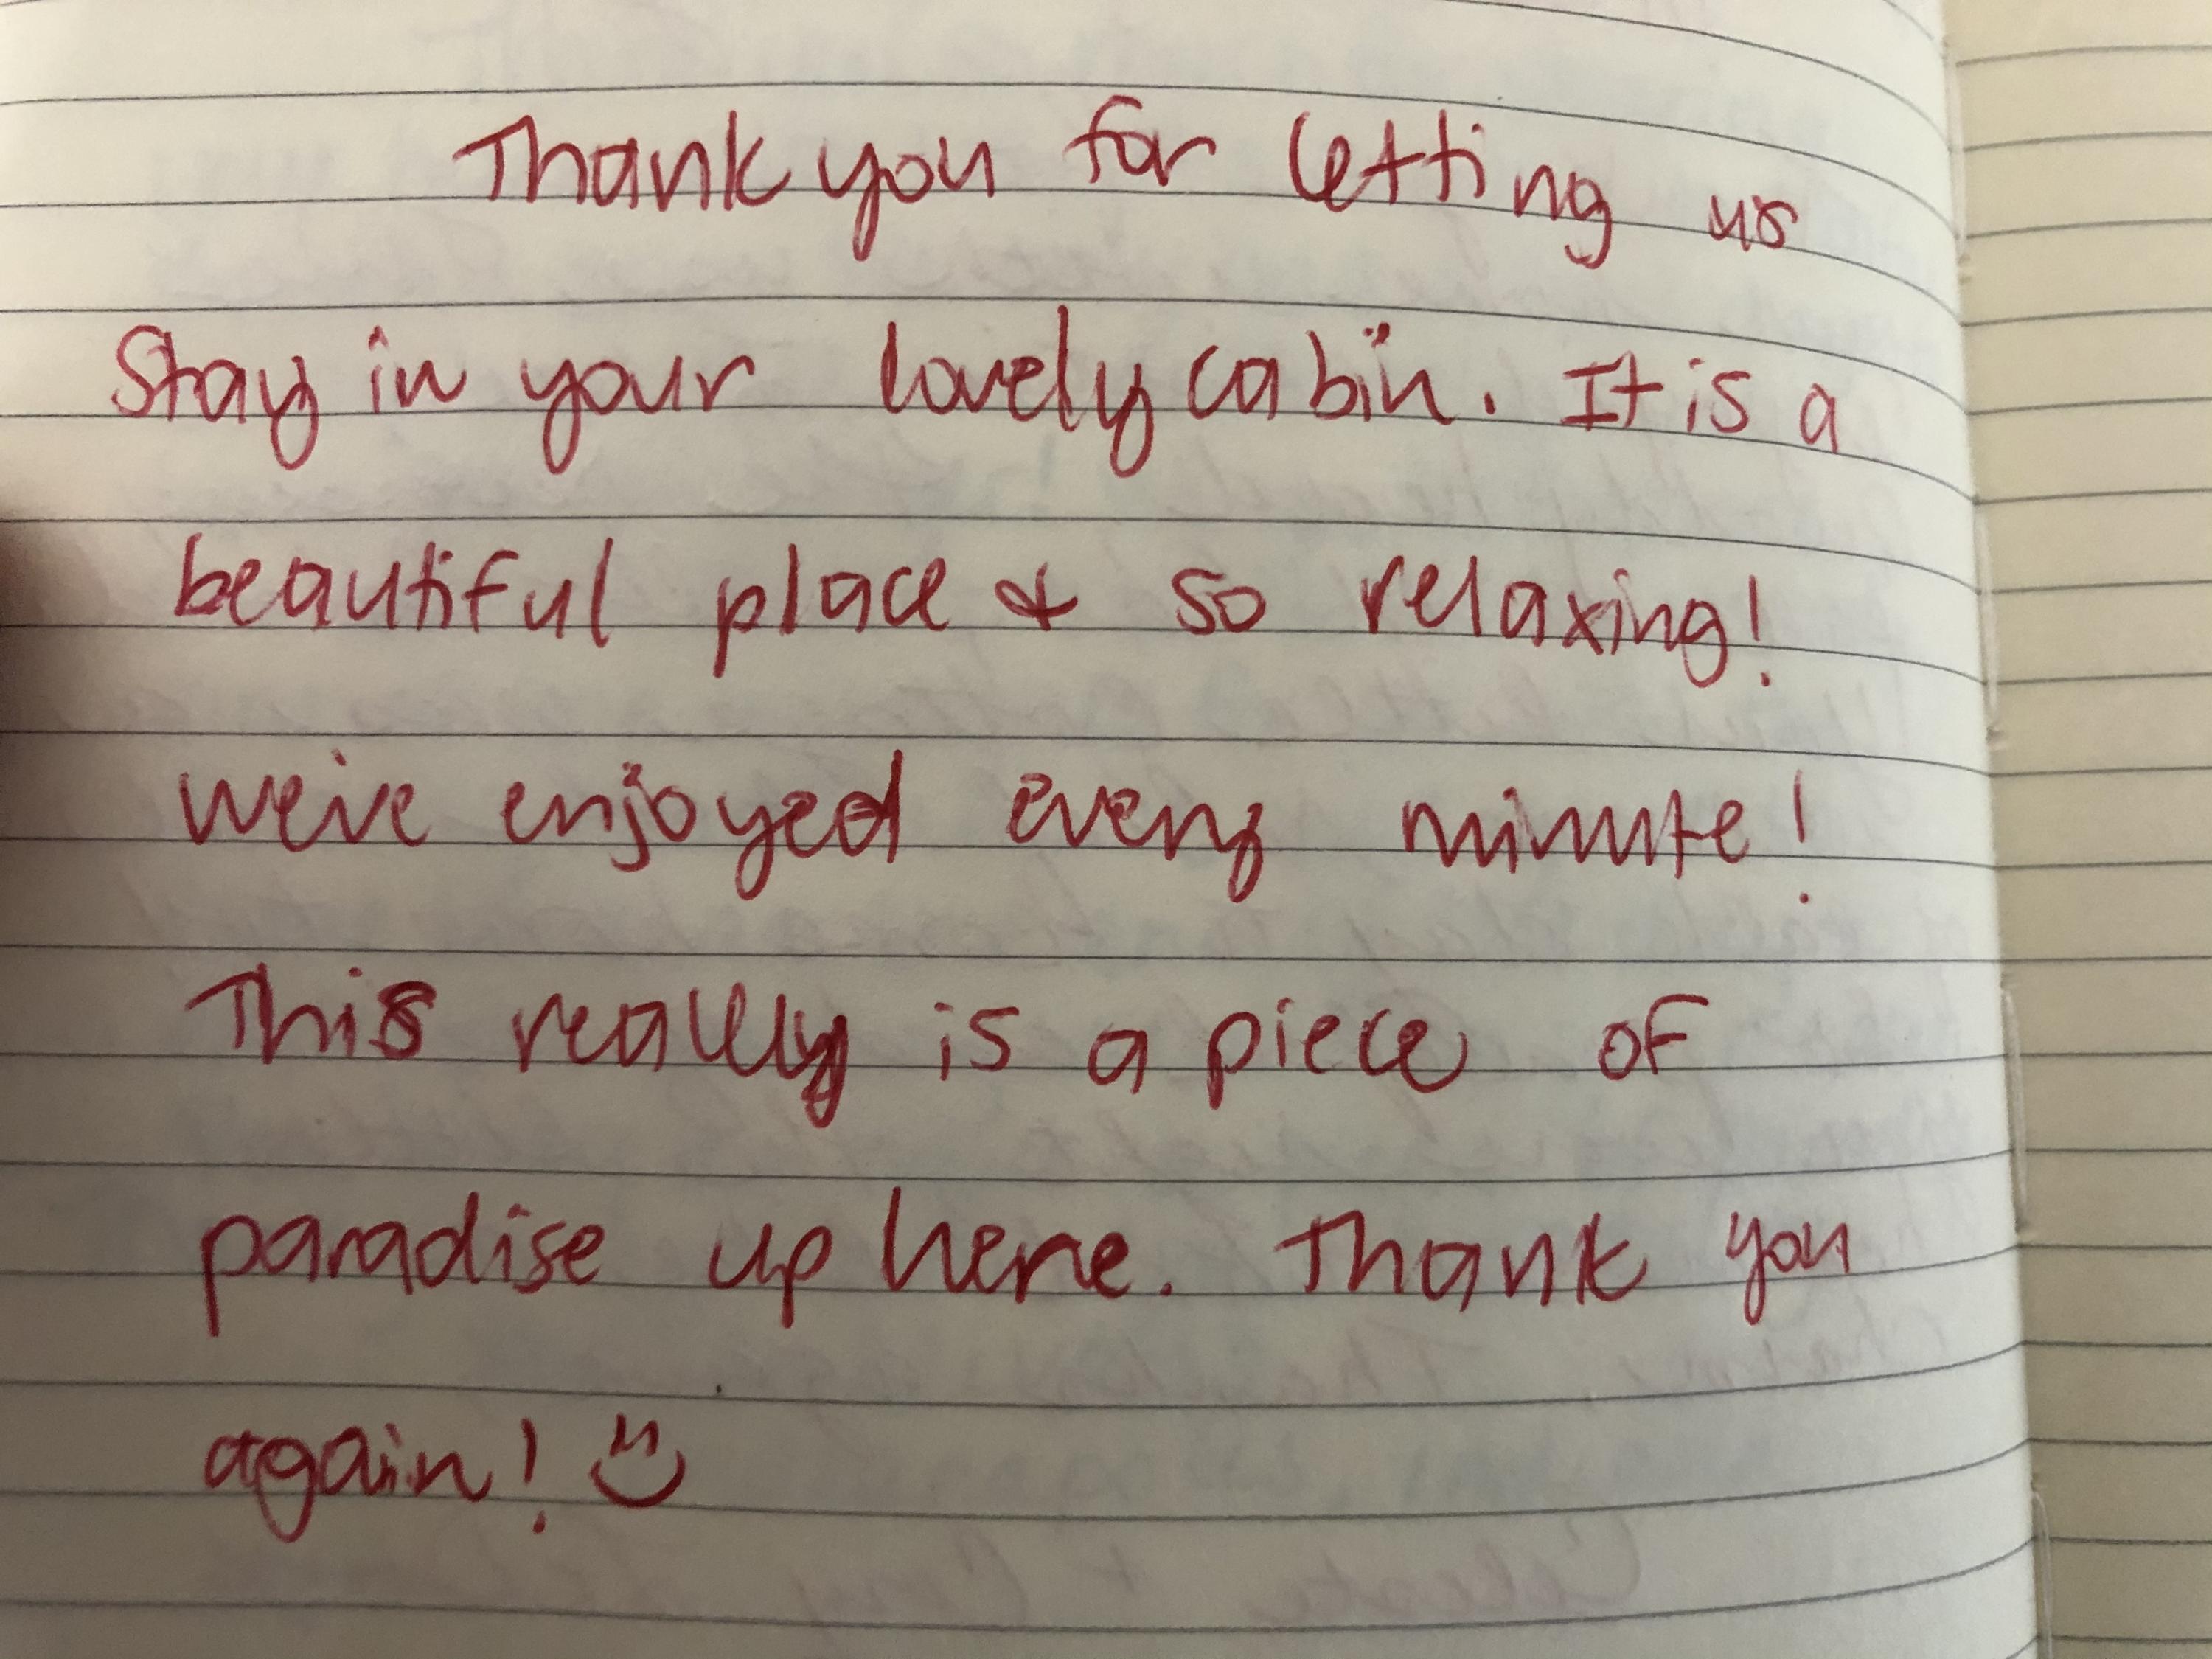 Thank you for letting us
Stay in your lovely cabin. It is a
beautiful place & so relaxing!
we've enjoyed every minute!
This really is a piece of
paradise up here. Thank you
again! :)